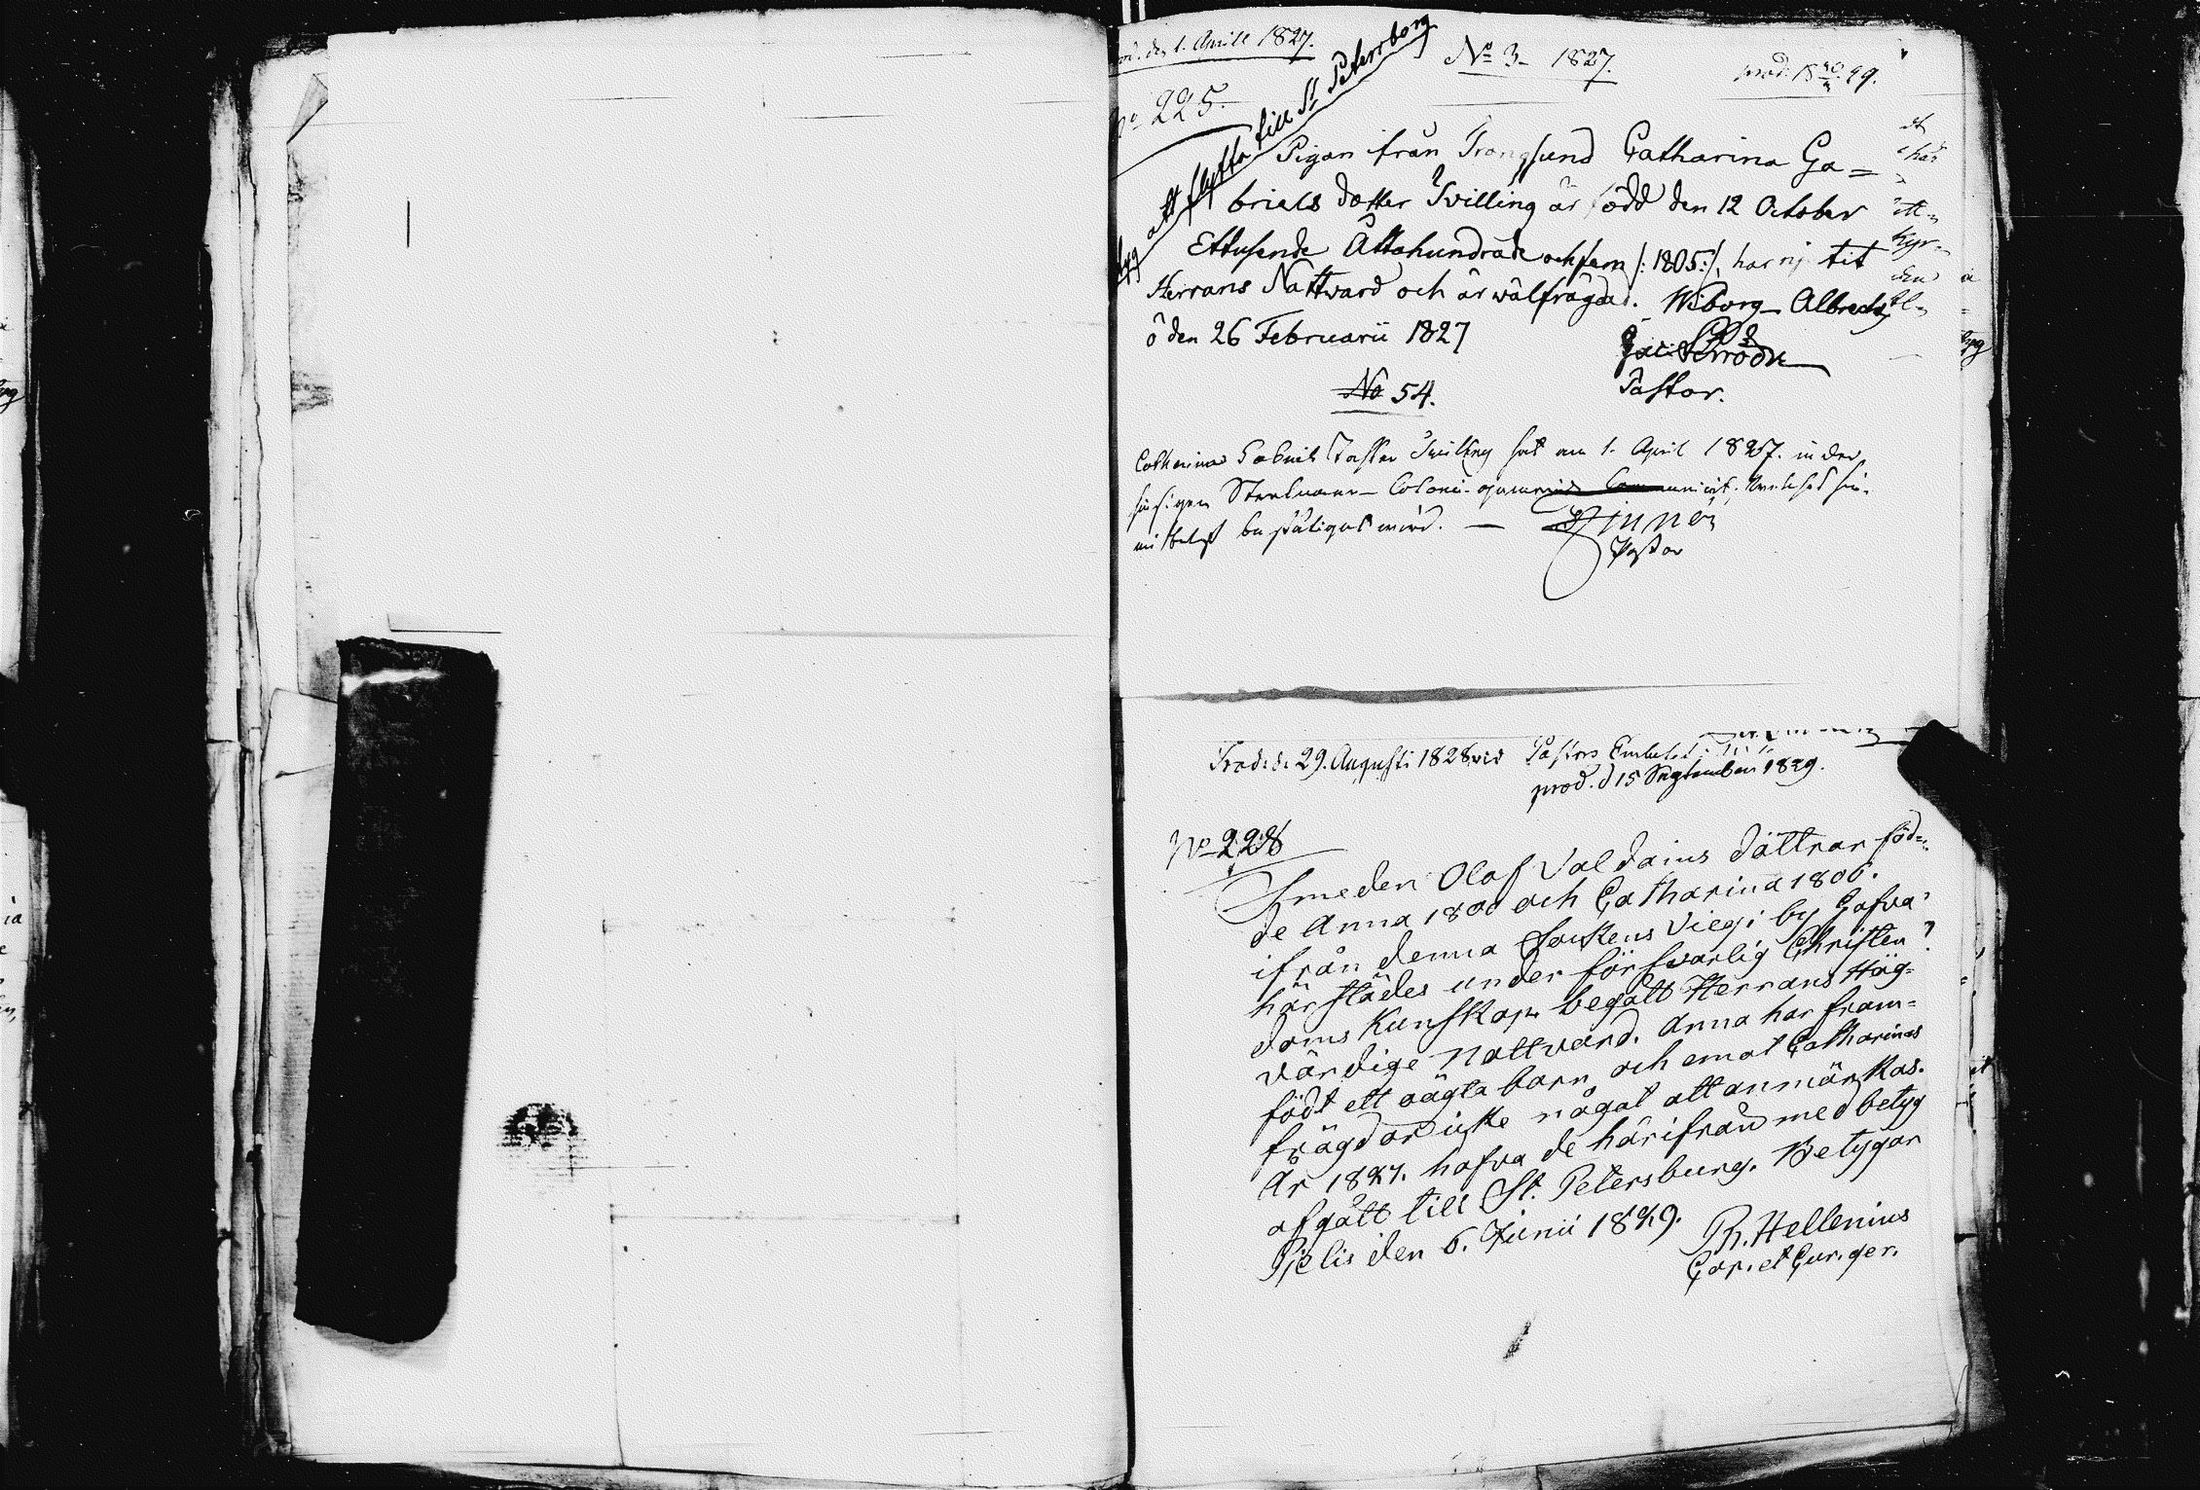 d. 1. Aprill 1827.
No 3 - 1827.
prod. 18 29.
No 225.
att flytta till St Petersborg
Pigan från Trongsund Catharina Ga=
briels dotter Tvilling är född den 12 October
Ettusende Åttahundrade och fem /: 1805 :/, har nj tit
Herrans Nattvard och är wälfrägdad. Wiborg - Albrecht
ö den 26 Februarii 1827
Pastor.
No 54.
Catharina Gabriels Dotter Twilling hat am 1. April 1827. in der
hiesigen Colonie-gemeinde Communicirt. Welches hie-
mittelst bestätiget wird. —
Pastor
Prod: d. 29. Augusti 1828 vid Pastors Embetet
prod. d 15 September 1829.
No 228
Smeden Olof Valdains döttrar föd=
de Anna 1800 och Catharina 1806.
ifrån denna Sockens Viegi by hafva
härstädes under försvarlig Christen
doms Kunskap begått Herrans Hög=
värdige Nattvard. Anna har fram=
födt ett oägta barn och emot Catharinas
frägd är icke något att anmärkas.
År 1827. hafva de härifrån med betyg
afgått till St. Petersburg. Betygar
Pjelis den 6. Junii 1829.
Ph. Hellenius
Cap. et Cur. ger.